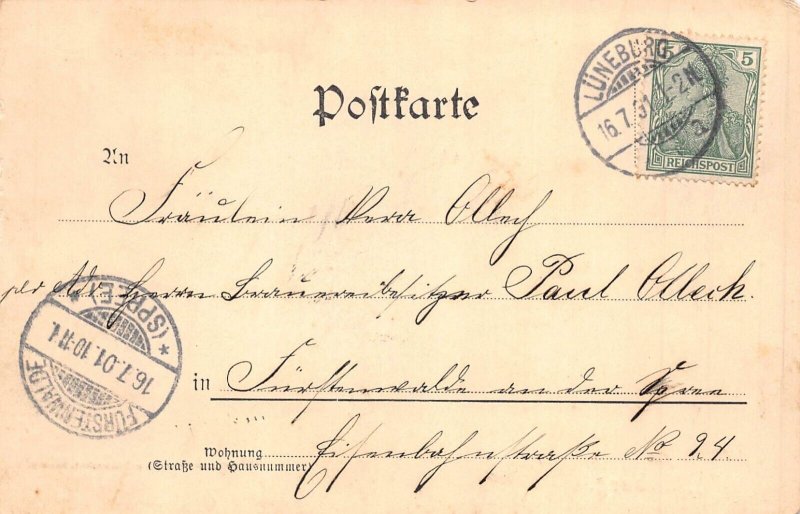 Postkarte
LÜNEBURG
16.7.01 1-2N.
a
5
5
REICHSPOST
An
Fräulein Vera Olleck
per Adr. Herrn Brauereibesitzer Paul Olleck.
* (SPREE) *
16.7.01.10-11
FÜRSTENWALDE
in Fürstenwalde an der Spree
Wohnung
(Straße und Hausnummer)
Eisenbahnstraße No 24